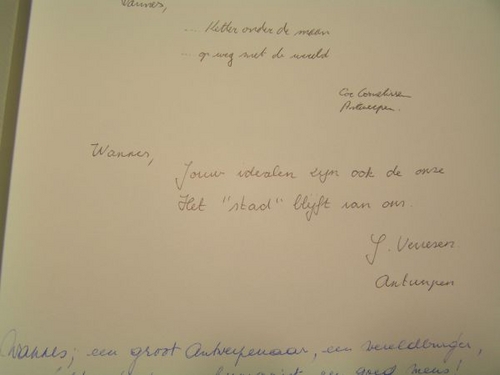 Wannes,
... Ketter onder de maan
... op weg met de wereld
Cor Cornelissen
Antwerpen.
Wannes,
Jouw idealen zijn ook de onze
Het "stad" blijft van ons.
Antwerpen
Wannes; een groot Antwerpenaar, een wereldburger,
en goed mens!